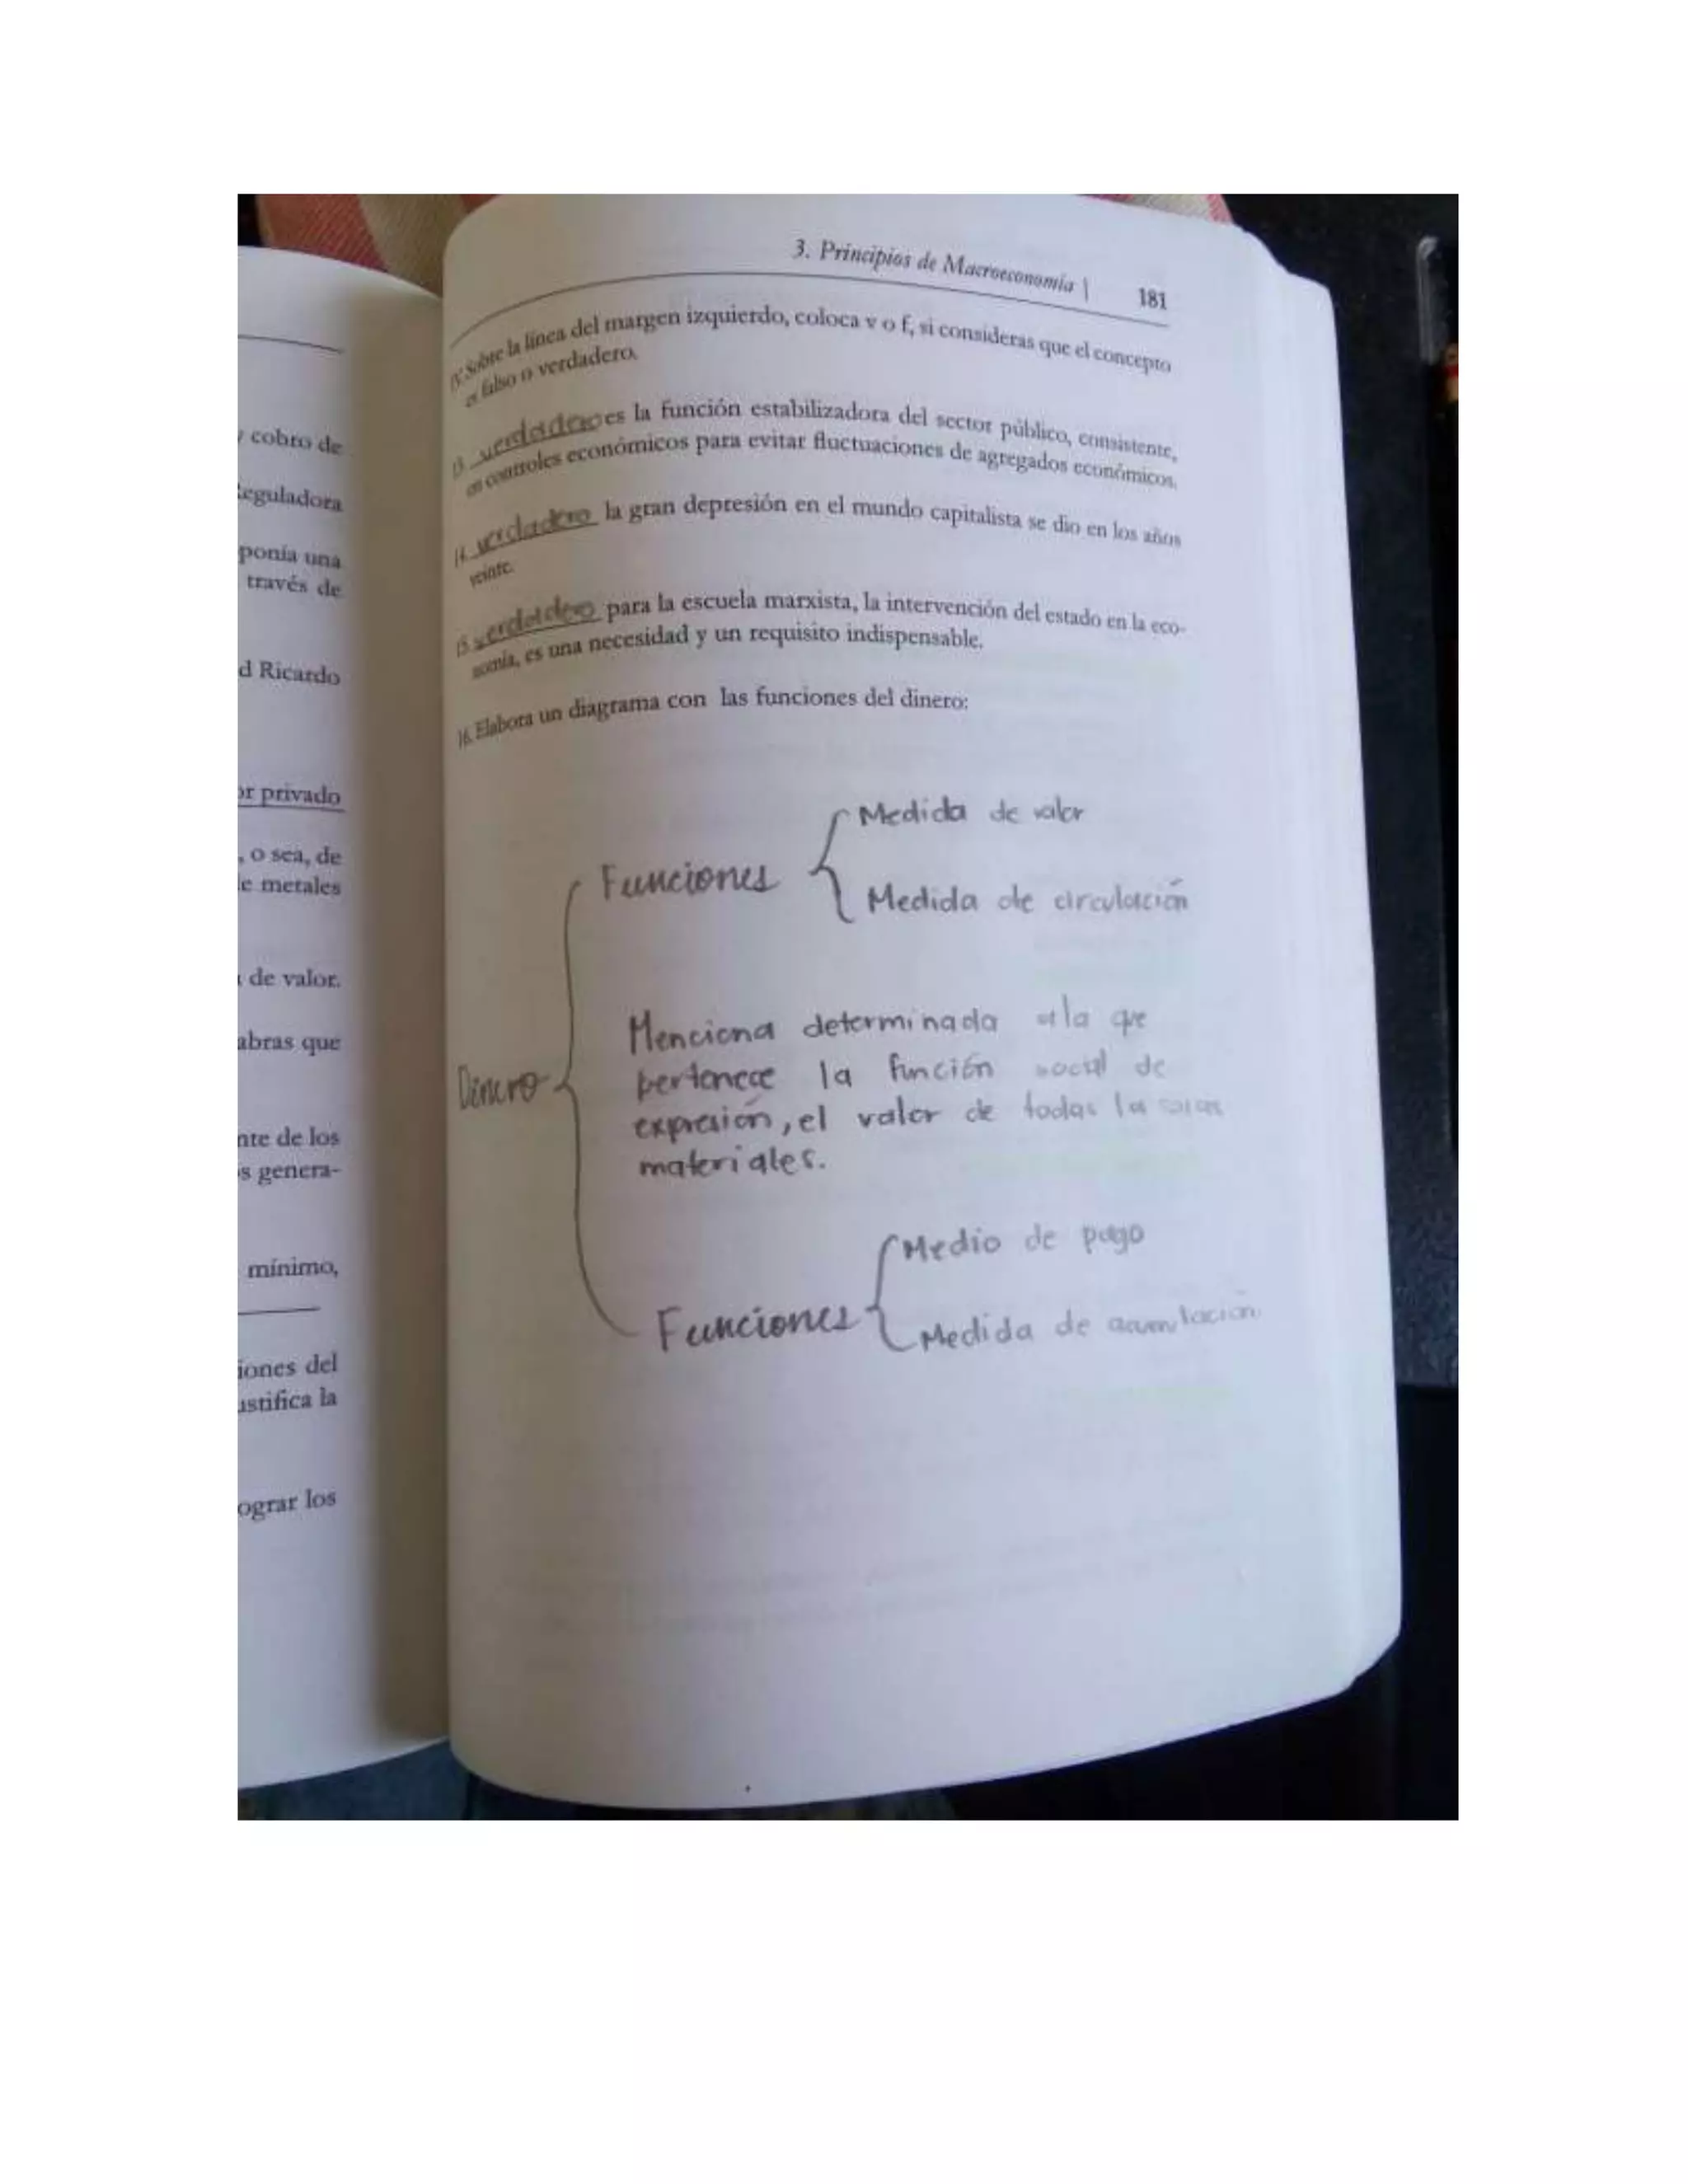 y cobro de
Reguladora
ponía una
través de
d Ricardo
or privado
, o sea, de
de metales
de valor.
abras que
nte de los
s genera-
mínimo,
iones del
ustifica la
ograr los
3. Principios de Macroeconomía | 181
IV. Sobre la línea del margen izquierdo, coloca v o f, si consideras que el concepto
es falso o verdadero.
13. verdadero es la función estabilizadora del sector público, consistente,
en controles económicos para evitar fluctuaciones de agregados económicos.
14. verdadero la gran depresión en el mundo capitalista se dio en los años
veinte.
15. verdadero para la escuela marxista, la intervención del estado en la eco-
nomía, es una necesidad y un requisito indispensable.
16. Elabora un diagrama con las funciones del dinero:
Medida de valor
Funciones
Medida de circulación
Menciona determinada a la que
Dinero
pertenece la función social de
expresión, el valor de todas la cosas
materiales.
Medio de pago
Funciones
Medida de acumulación